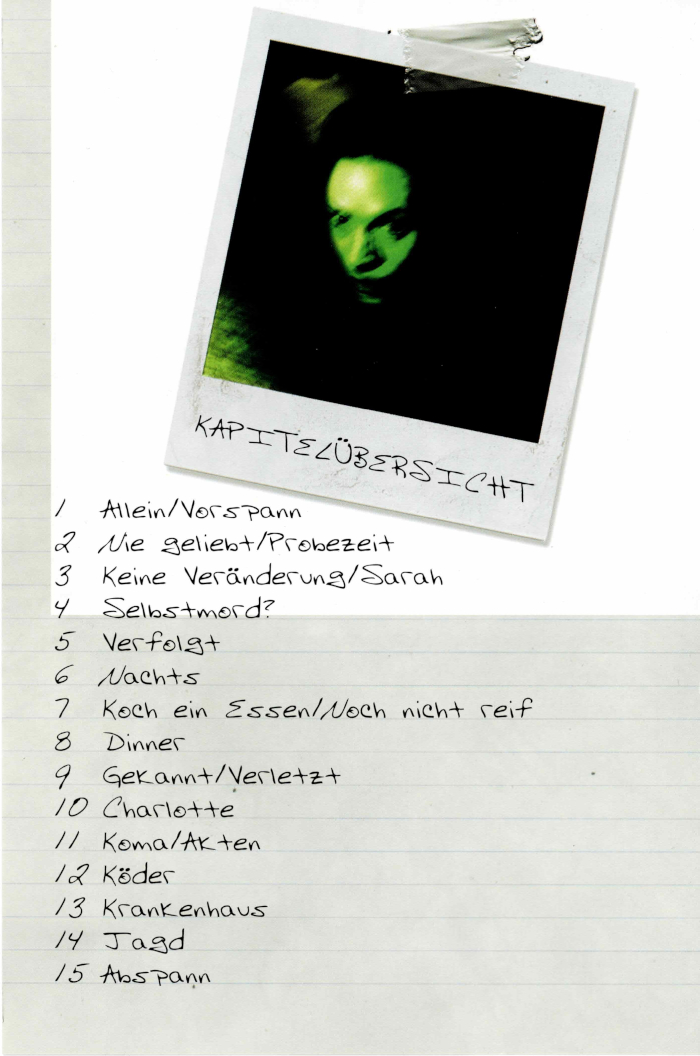 KAPITELÜBERSICHT
1 Allein/Vorspann
2 Nie geliebt/Probezeit
3 Keine Veränderung/Sarah
4 Selbstmord?
5 Verfolgt
6 Nachts
7 Koch ein Essen/Noch nicht reif
8 Dinner
9 Gekannt/Verletzt
10 Charlotte
11 Koma/Akten
12 Köder
13 Krankenhaus
14 Jagd
15 Abspann